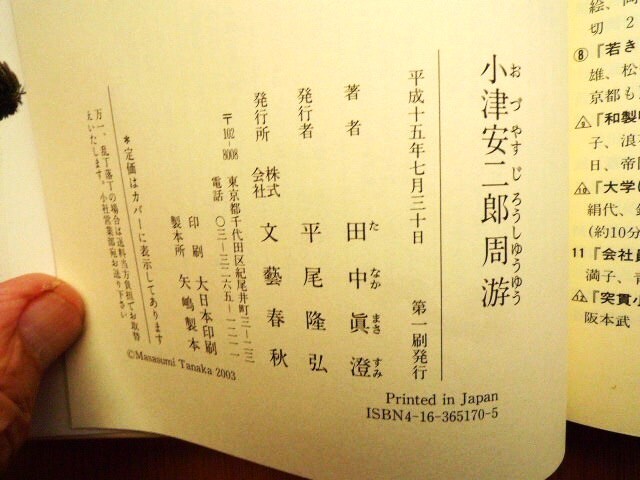 小津安二郎周游
おづやすじろうしゅうゆう
平成十五年七月三十日 第一刷発行
著者 田中眞澄
たなかまさすみ
発行者 平尾隆弘
発行所 株式会社 文藝春秋
〒102-8008 東京都千代田区紀尾井町三-二三
電話 〇三-三二六五-一二一一
印刷 大日本印刷
製本所 矢嶋製本
*定価はカバーに表示してあります
万一、乱丁落丁の場合は送料当方負担でお取替
えいたします。小社営業部宛お送り下さい
©Masasumi Tanaka 2003
Printed in Japan
ISBN4-16-365170-5
切 2
⑧『若き
雄、松
京都も
『和製
子、浪
日、帝
『大学
絹代、
(約10分
11『会社員
満子、青
『突貫小
阪本武